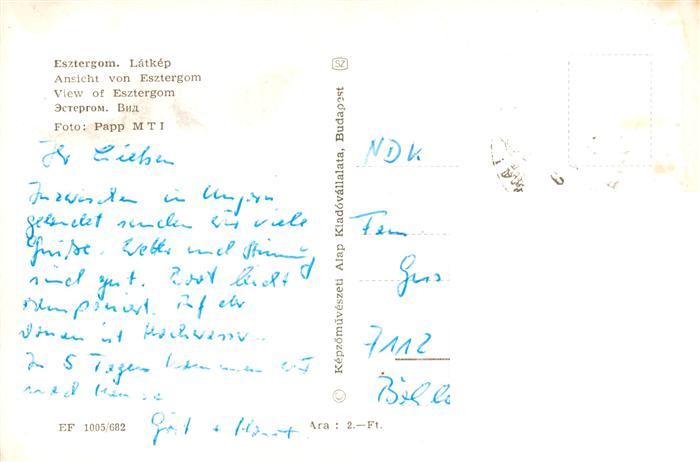 Esztergom. Látkép
Ansicht von Esztergom
View of Esztergom
Эстергом. Вид
Foto: Papp MTI
Ihr Lieben
Inzwischen in Ungarn
gelandet senden wir viele
Grüße. Wetter und Stimmung
sind gut. Boot leicht
ramponiert. Auf der
Donau ist Hochwasser.
In 5 Tagen kommen wir
nach Hause
Gert + Horst
EF 1005/682
Ára: 2.—Ft.
© Képzőművészeti Alap Kiadóvállalata, Budapest
SZ
NDK
Fam
7112